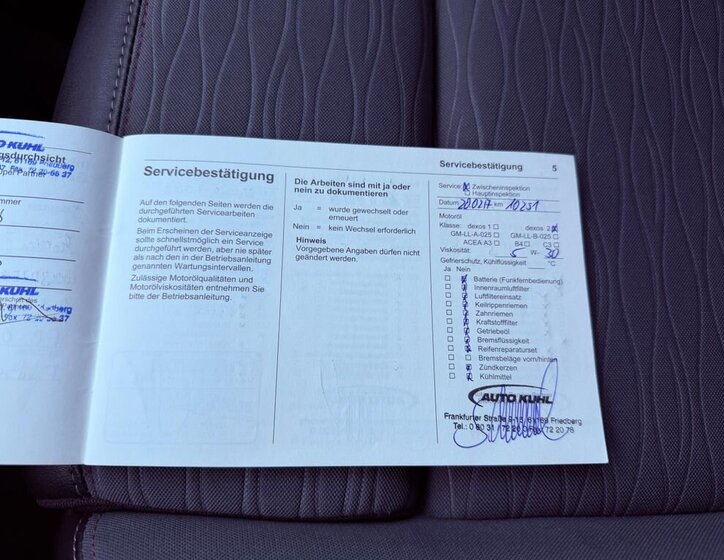 KUHL
gsdurchsicht
Servicebestätigung
Auf den folgenden Seiten werden die
durchgeführten Servicearbeiten
dokumentiert.
Beim Erscheinen der Serviceanzeige
sollte schnellstmöglich ein Service
durchgeführt werden, aber nie später
als nach den in der Betriebsanleitung
genannten Wartungsintervallen.
Zulässige Motorölqualitäten und
Motorölviskositäten entnehmen Sie
bitte der Betriebsanleitung.
Die Arbeiten sind mit ja oder
nein zu dokumentieren
Ja = wurde gewechselt oder
erneuert
Nein = kein Wechsel erforderlich
Hinweis
Vorgegebene Angaben dürfen nicht
geändert werden.
Servicebestätigung 5
Service: Zwischeninspektion
Hauptinspektion
Datum km 10251
Motoröl
Klasse: dexos 1 dexos 2
GM-LL-A-025 GM-LL-B-025
ACEA A3 B4 C3
Viskosität: 5 W- 30
Gefrierschutz, Kühlflüssigkeit °C
Ja Nein
Batterie (Funkfernbedienung)
Innenraumluftfilter
Luftfiltereinsatz
Keilrippenriemen
Zahnriemen
Kraftstofffilter
Getriebeöl
Bremsflüssigkeit
Reifenreparaturset
Bremsbeläge vorn/hinten
Zündkerzen
Kühlmittel
AUTO KUHL
Frankfurter Straße 9-13, 61169 Friedberg
Tel.: 0 60 31 / 72 20 72 20 78